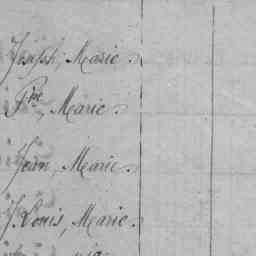 Joseph, Marie.
Pre, Marie.
Jean, Marie.
J. Louis, Marie.